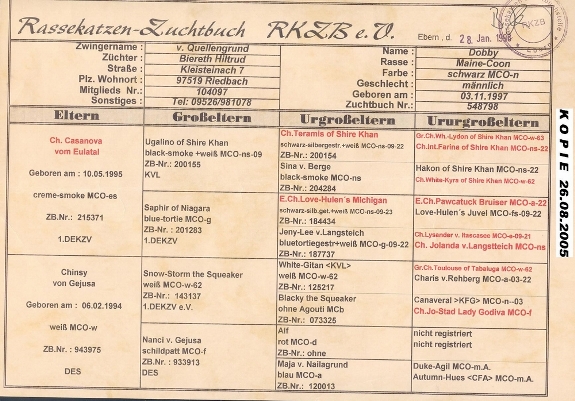 Rassekatzen-Zuchtbuch RKZB e.V.
Ebern, d. 28. Jan. 1998
RKZB
Zwingername : v. Quellengrund
Züchter : Biereth Hiltrud
Straße : Kleisteinach 7
Plz. Wohnort : 97519 Riedbach
Mitglieds Nr.: 104097
Sonstiges : Tel: 09526/981078
Name : Dobby
Rasse : Maine-Coon
Farbe : schwarz MCO-n
Geschlecht : männlich
Geboren am : 03.11.1997
Zuchtbuch Nr.: 548798
Eltern
Ch. Casanova
vom Eulatal
Geboren am : 10.05.1995
creme-smoke MCO-es
ZB.Nr. : 215371
1.DEKZV
Chinsy
von Gejusa
Geboren am : 06.02.1994
weiß MCO-w
ZB.Nr. : 943975
DES
Großeltern
Ugalino of Shire Khan
black-smoke +weiß MCO-ns-09
ZB-Nr. : 200155
KVL
Saphir of Niagara
blue-tortie MCO-g
ZB.Nr. : 201283
1.DEKZV
Snow-Storm the Squeaker
weiß MCO-w-62
ZB.Nr. : 143137
1.DEKZV e.V.
Nanci v. Gejusa
schildpatt MCO-f
ZB.Nr. : 933913
DES
Urgroßeltern
Ch.Teramis of Shire Khan
schwarz-silbergestr.+weiß MCO-ns-09-22
ZB-Nr. : 200154
Sina v. Berge
black-smoke MCO-ns
ZB-Nr. : 204284
E.Ch.Love-Hulen´s Michigan
schwarz-silb.get.+weiß MCO-ns-09-23
ZB.Nr. : 184434
Jeny-Lee v.Langsteich
bluetortiegestr+weiß MCO-g-09-22
ZB.Nr. : 187737
White-Gitan <KVL>
weiß MCO-w-62
ZB-Nr. : 125217
Blacky the Squeaker
ohne Agouti MCb
ZB-Nr. : 073325
Alf
rot MCO-d
ZB-Nr.: ohne
Maja v. Nailagrund
blau MCO-a
ZB.Nr.: 120013
Ururgroßeltern
Gr.Ch.Wh.-Lydon of Shire Khan MCO-w-63
Ch.Int.Farine of Shire Khan MCO-ns-22
Hakon of Shire Khan MCO-ns-22
Ch.White-Kyra of Shire Khan MCO-w-62
E.Ch.Pawcatuck Bruiser MCO-a-22
Love-Hulen´s Juvel MCO-fs-09-22
Ch.Lysander v. Itascasee MCO-e-09-21
Ch. Jolanda v.Langstteich MCO-ns
Gr.Ch.Toulouse of Tabaluga MCO-w-62
Charis v.Rehberg MCO-a-03-22
Canaveral >KFG> MCO-n--03
Ch.Jo-Stad Lady Godiva MCO-f
nicht registriert
nicht registriert
Duke-Agil MCO-m.A.
Autumn-Hues <CFA> MCO-m.A.
KOPIE 26.08.2005